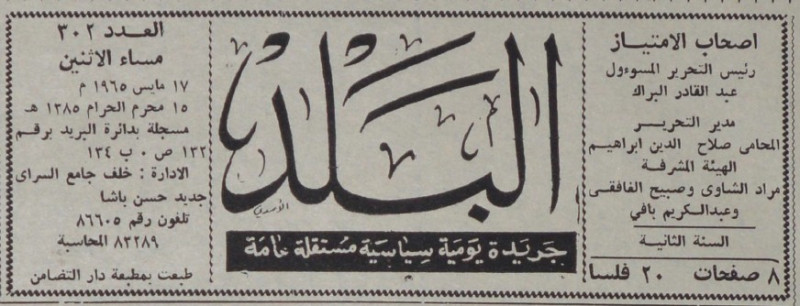 اصحاب الامتيـاز
رئيس التحرير المسوءول
عبد القادر البراك
مدير التحريـر
المحامى صلاح الدين ابراهيم
الهيئة المشرفة
مراد الشاوى وصبيح الغافقى
وعبدالكريم بافي
السنة الثانيـة
٨ صفحات ٢٠ فلسا
البلد
جريدة يومية سياسية مستقلة عامة
العـدد ٣٠٢
مساء الاثنين
١٧ مايس ١٩٦٥ م
١٥ محرم الحرام ١٣٨٥ هـ
مسجلة بدائرة البريد برقم
١٣٢ ص ٠ ب ١٣٤
الادارة : خلف جامع السراى
جديد حسن باشا
تلفون رقم ٨٦٦٠٥
٨٣٢٨٩ المحاسبة
طبعت بمطبعة دار التضامن